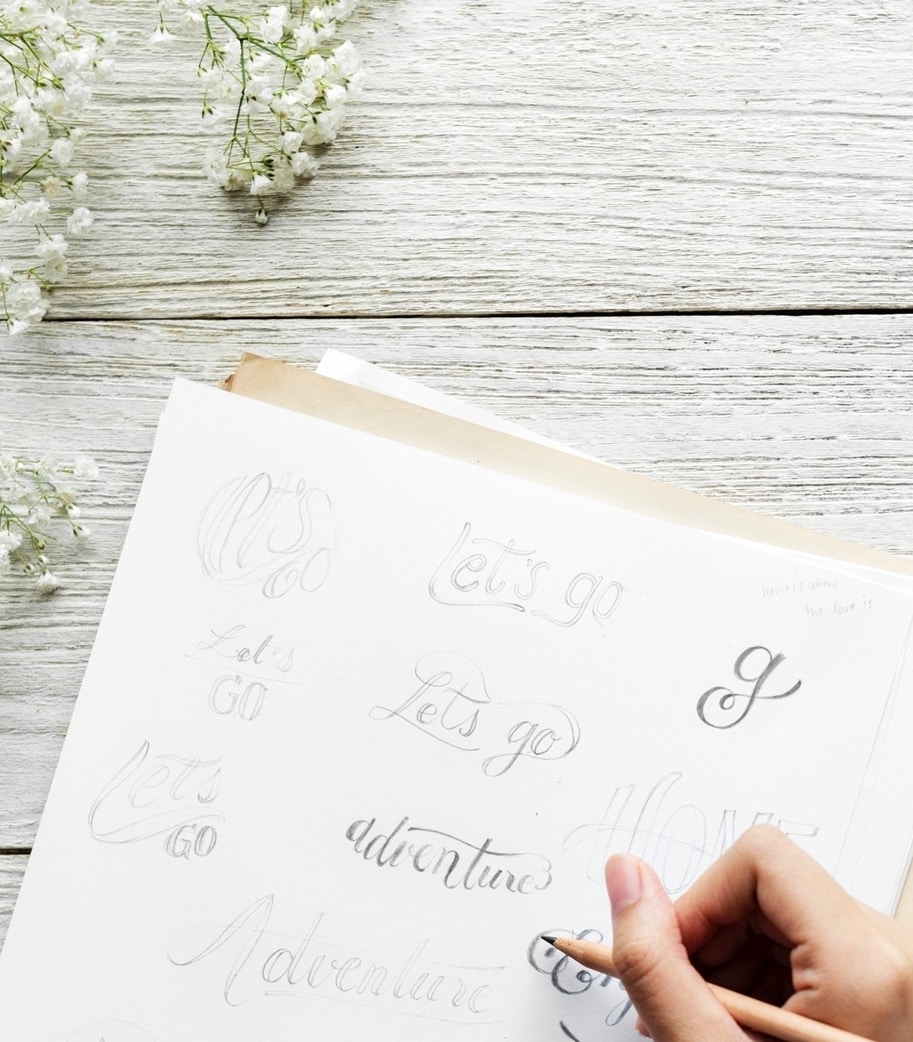 let's
go
Let's go
home is where
the love is
Let's
GO
Lets go
g
Lets
GO
HOME
adventure
Adventure